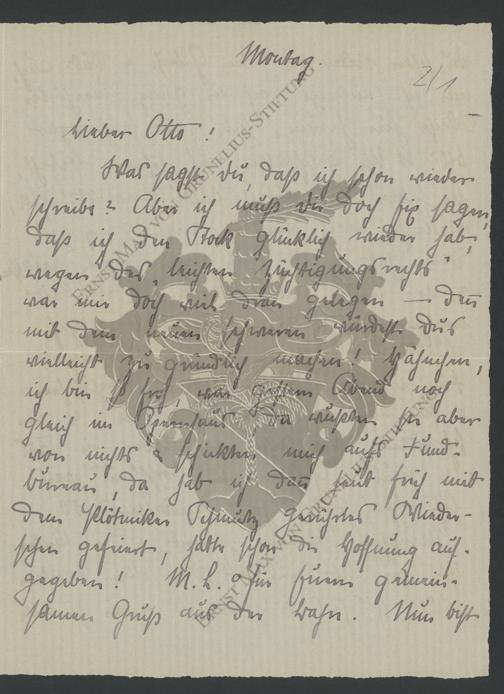 Montag.
2/1
Lieber Otto!
Was sagst du, daß ich schon wieder
schreibe? Aber ich muß dir doch fix sagen,
daß ich den Stock glücklich wieder hab,
wegen "des leichten Züchtigungsrechts"
war mir doch viel dran gelegen — denn
mit dem neuen schweren würdest Du's
vielleicht zu gründlich machen!
ich bin so froh, war gestern Abend noch
gleich im Opernhaus, da wußten sie aber
von nichts & schickten mich aufs Fund-
bureau, da hab ich dann heut früh mit
dem Schmutz gerührtes Wieder-
sehen gefeiert, hatte schon die Hoffnung auf-
gegeben! M. l. für Euern gemein-
samen Gruß aus der Bahn. Nun bist
ERNST MAX VON GRUNELIUS-STIFTUNG
ERNST MAX VON GRUNELIUS-STIFTUNG